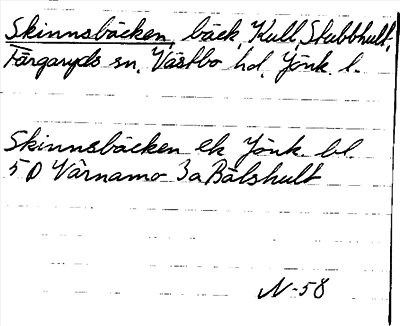 Skinnsbäcken, bäck, Kull, Stubbhult,
Färgaryds sn, Västbo hd, Jönk. l.
Skinnsbäcken ek Jönk. bl.
5 D Värnamo 3a Bälshult
N-58